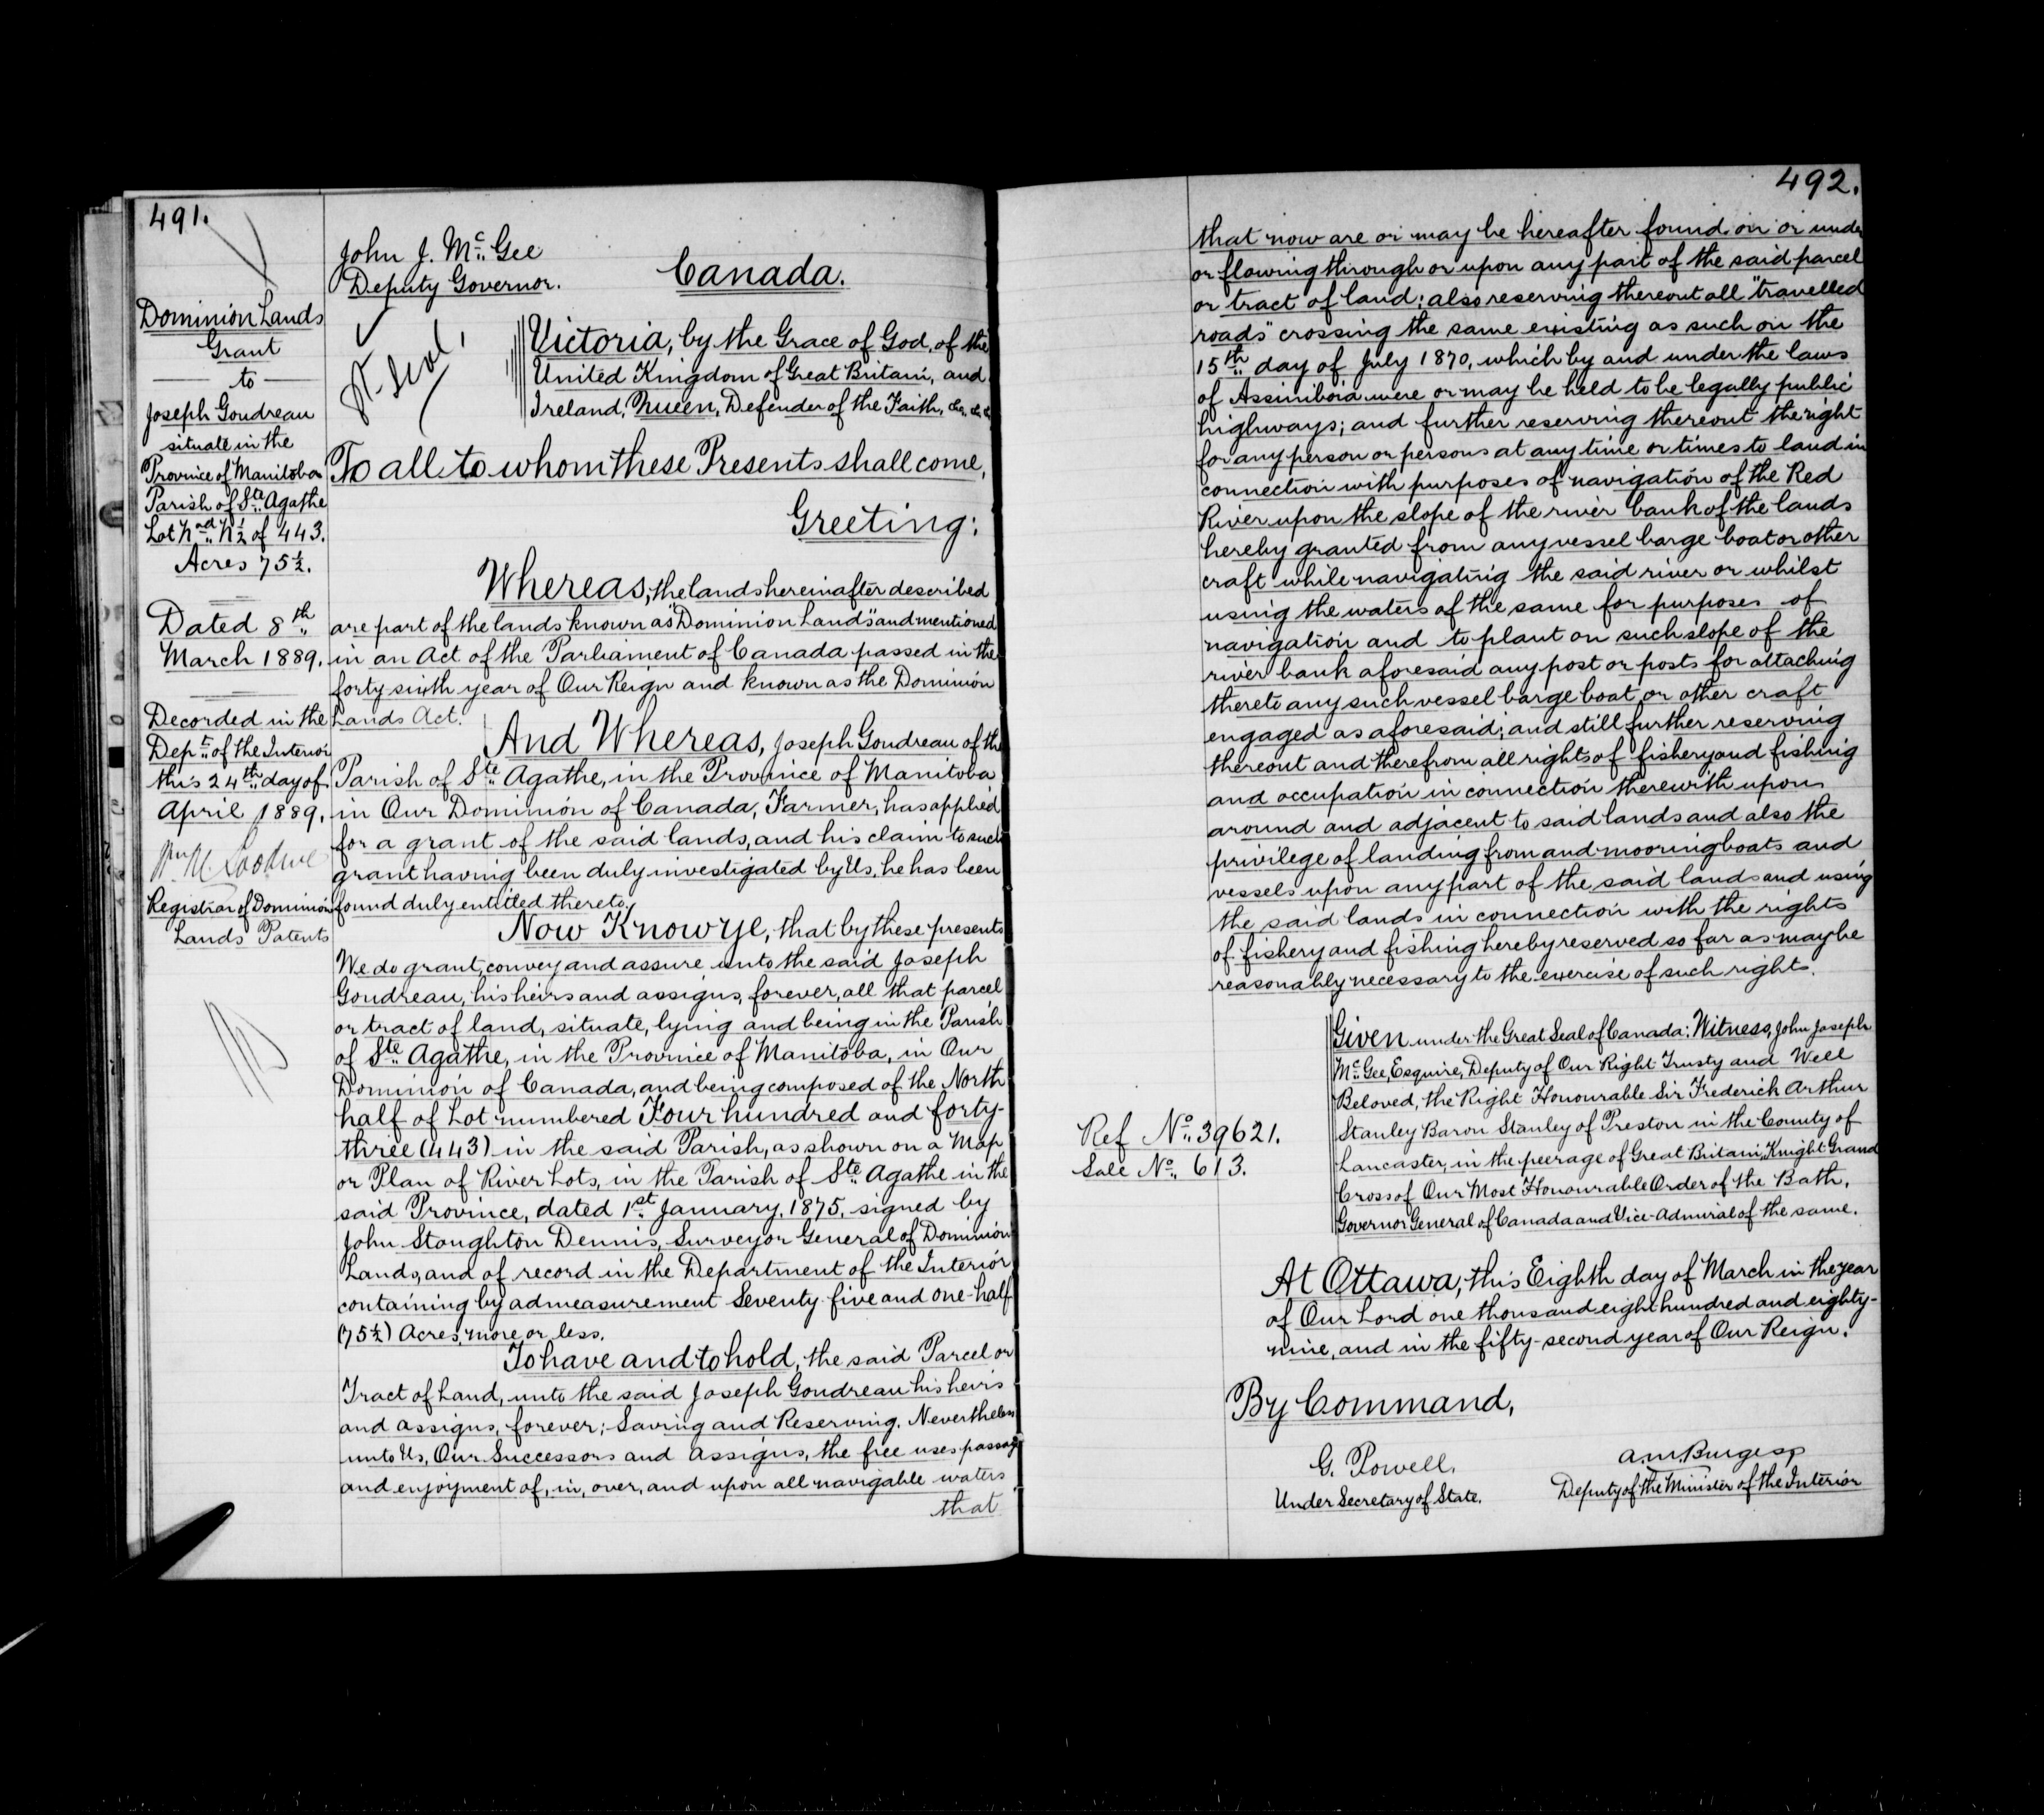 491.
Dominion Lands
Grant
to
Joseph Goudreau
situate in the
Province of Manitoba
Parish of Ste. Agathe
Lot N ½ of 443.
Acres 75½.
Dated 8th
March 1889.
Recorded in the
Dept. of the Interior
this 24th day of
April 1889.
Registrar of Dominion
Lands Patents
John J. McGee
Deputy Governor.
Canada.
Victoria, by the Grace of God, of the
United Kingdom of Great Britain, and
Ireland, Queen, Defender of the Faith, &c, &c, &c
To all to whom these Presents shall come,
Greeting:
Whereas, the lands hereinafter described
are part of the lands known as "Dominion Lands" and mentioned
in an Act of the Parliament of Canada passed in the
forty sixth year of Our Reign and known as the Dominion
Lands Act.
And Whereas, Joseph Goudreau of the
Parish of Ste. Agathe, in the Province of Manitoba
in Our Dominion of Canada, Farmer, has applied
for a grant of the said lands, and his claim to such
grant having been duly investigated by Us, he has been
found duly entitled thereto.
Now Know Ye, that by these presents
We do grant, convey and assure unto the said Joseph
Goudreau, his heirs and assigns, forever, all that parcel
or tract of land, situate, lying and being in the Parish
of Ste. Agathe, in the Province of Manitoba, in Our
Dominion of Canada, and being composed of the North
half of Lot numbered Four hundred and forty-
three (443) in the said Parish, as shown on a Map
or Plan of River Lots, in the Parish of Ste. Agathe in the
said Province, dated 1st. January, 1875, signed by
John Stoughton Dennis, Surveyor General of Dominion
Lands, and of record in the Department of the Interior
containing by admeasurement Seventy-five and one-half
(75½) Acres, more or less.
To have and to hold, the said Parcel or
Tract of Land, unto the said Joseph Goudreau his heirs
and assigns, forever; Saving and Reserving, Nevertheless
unto Us, Our Successors and Assigns, the free uses passage
and enjoyment of, in, over, and upon all navigable waters
that
492.
that now are or may be hereafter found on or under
or flowing through or upon any part of the said parcel
or tract of land; also reserving thereout all "travelled
roads" crossing the same existing as such on the
15th day of July 1870, which by and under the laws
of Assiniboia were or may be held to be legally public
highways; and further reserving thereout the right
for any person or persons at any time or times to land in
connection with purposes of navigation of the Red
River upon the slope of the river bank of the lands
hereby granted from any vessel barge boat or other
craft while navigating the said river or whilst
using the waters of the same for purposes of
navigation and to plant on such slope of the
river bank aforesaid any post or posts for attaching
thereto any such vessel barge boat or other craft
engaged as aforesaid; and still further reserving
thereout and therefrom all rights of fishery and fishing
and occupation in connection therewith upon
around and adjacent to said lands and also the
privilege of landing from and mooring boats and
vessels upon any part of the said lands and using
the said lands in connection with the rights
of fishery and fishing hereby reserved so far as may be
reasonably necessary to the exercise of such rights.
Given under the Great Seal of Canada: Witness, John Joseph
McGee, Esquire, Deputy of Our Right Trusty and Well
Beloved, the Right Honourable Sir Frederick Arthur
Stanley Baron Stanley of Preston in the County of
Lancaster, in the peerage of Great Britain, Knight Grand
Cross of Our Most Honourable Order of the Bath,
Governor General of Canada and Vice-Admiral of the same.
Ref No. 39621.
Sale No. 613.
At Ottawa, this Eighth day of March in the year
of Our Lord one thousand eight hundred and eighty-
nine, and in the fifty-second year of Our Reign.
By Command,
G. Powell,
Under Secretary of State.
A. M. Burgess
Deputy of the Minister of the Interior